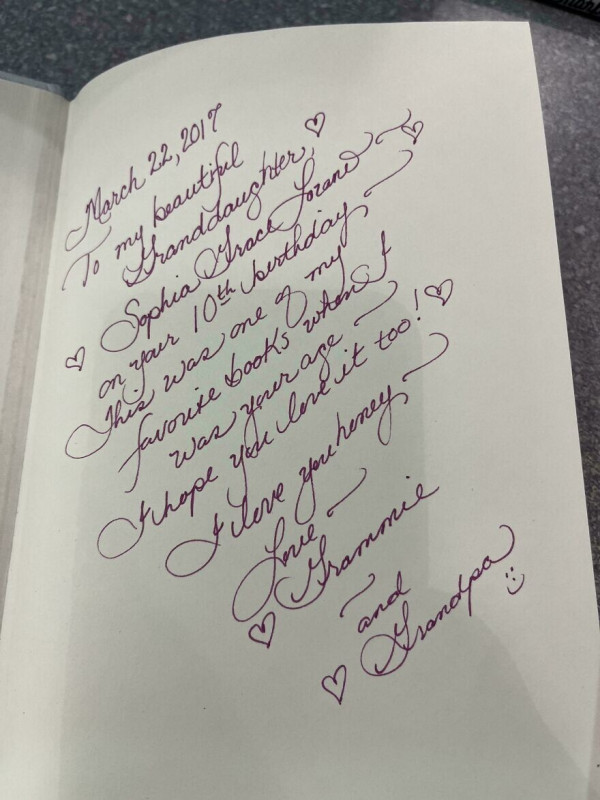 March 22, 2017
To my beautiful
Granddaughter, ♡
Sophia Grace
♡ on your 10th birthday
This was one of my
favourite books when I
was your age
I hope you love it too! ♡
I love you honey
Love
Grammie
♡ and
♡ Grandpa